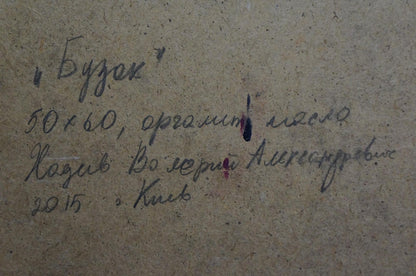 "Бузок"
50х60, оргаліт, масло
Хадив Валерий Александрович
2015 г Киев